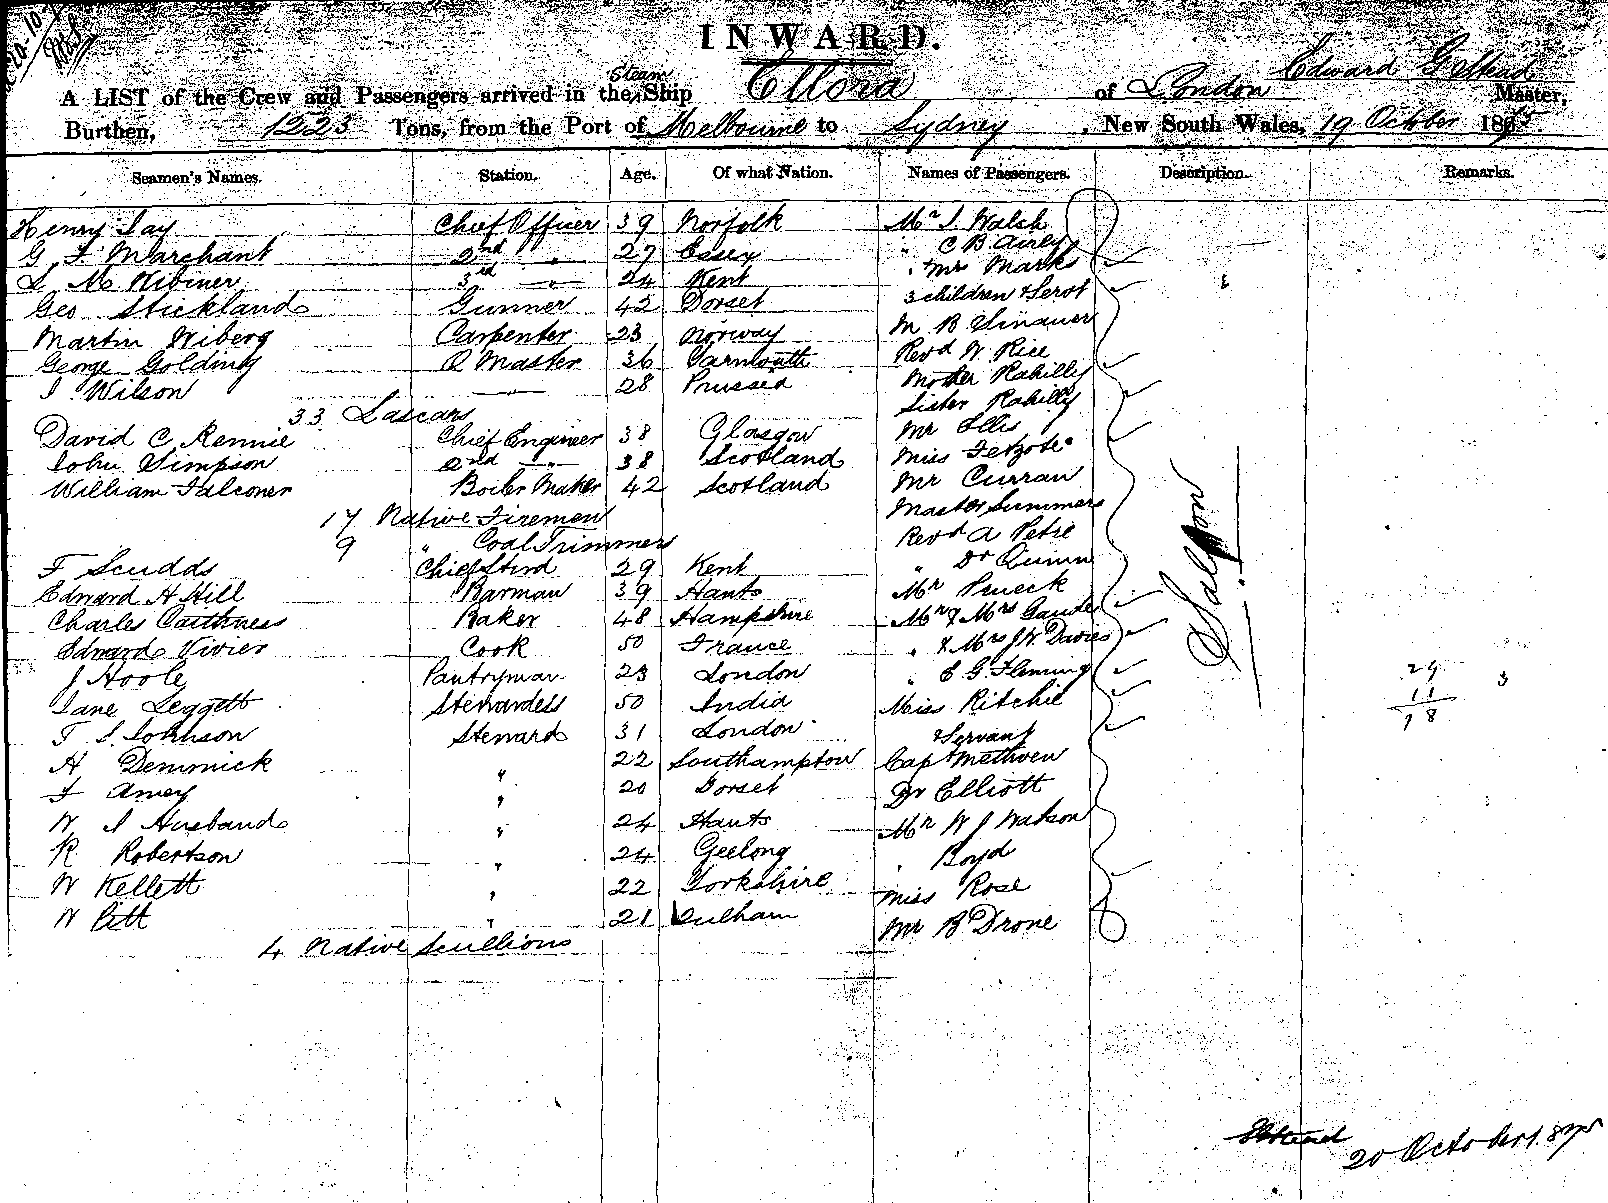 INWARD.
A LIST of the Crew and Passengers arrived in the Steam Ship Ellora of London Edward G Stead Master,
Burthen, 1223 Tons, from the Port of Melbourne to Sydney, New South Wales, 19 October 187
Seamen's Names. Station. Age. Of what Nation. Names of Passengers. Description. Remarks.
Henry Jay Chief Officer 39 Norfolk Mr J. Walsh
G F Marchant 2nd " 27 Essex " C B Airey
L M Wibmer 3rd " 24 Kent " Mrs Marks
Geo Stickland Gunner 42 Dorset 3 children & Servt
Martin Wiberg Carpenter 23 Norway M B Sinauer
George Golding Q Master 36 Yarmouth Revd W Rice
J Wilson 28 Prussea Mother Rahilly
33 Lascars Sister Rahilly
David C Rennie Chief Engineer 38 Glasgow Mr Ellis
John Simpson 2nd " 38 Scotland Miss
William Falconer Boiler Maker 42 Scotland Mr Curran
17 Native Firemen Master Summers
9 " Coal Trimmers Revd A Petre
F Scudds Chief Stwd 29 Kent " Dr Quinn
Edward H Hill Barman 39 Hants Mr Prueck
Charles Caithness Baker 48 Hampshire Mr & Mrs Gaude
Edward Vivier Cook 50 France " & Mrs J W Davies
J Hoole Pantryman 23 London " E G Fleming
Jane Leggett Stewardess 50 India Miss Ritchie
T S Johnson Steward 31 London & Servant
H Demmick " 22 Southampton Capt Methven
F Amey " 20 Dorset Dr Elliott
W J Husband " 24 Hants Mr W J Watson
R Robertson " 24 Geelong " Boyd
W Kellett " 22 Yorkshire Miss Rose
W Pitt " 21 Mr B Drone
4 Native Scullions
Saloon
29
11
78
3
20 October 1875